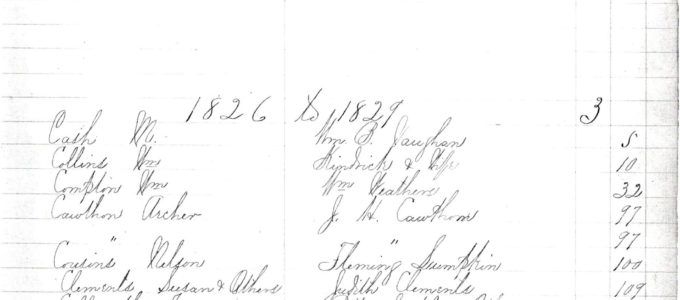 1826 to 1829 3
Cash M. Wm. B. Vaughan 5
Collins Wm Kindrick & Wife 10
Compton Wm Wm Weathers 32
Cawthon Archer J. H. Cawthorn 97
" " 97
Cousins Nelson Fleming Lumpkin 100
Clements Susan & Others Judith Clements 109